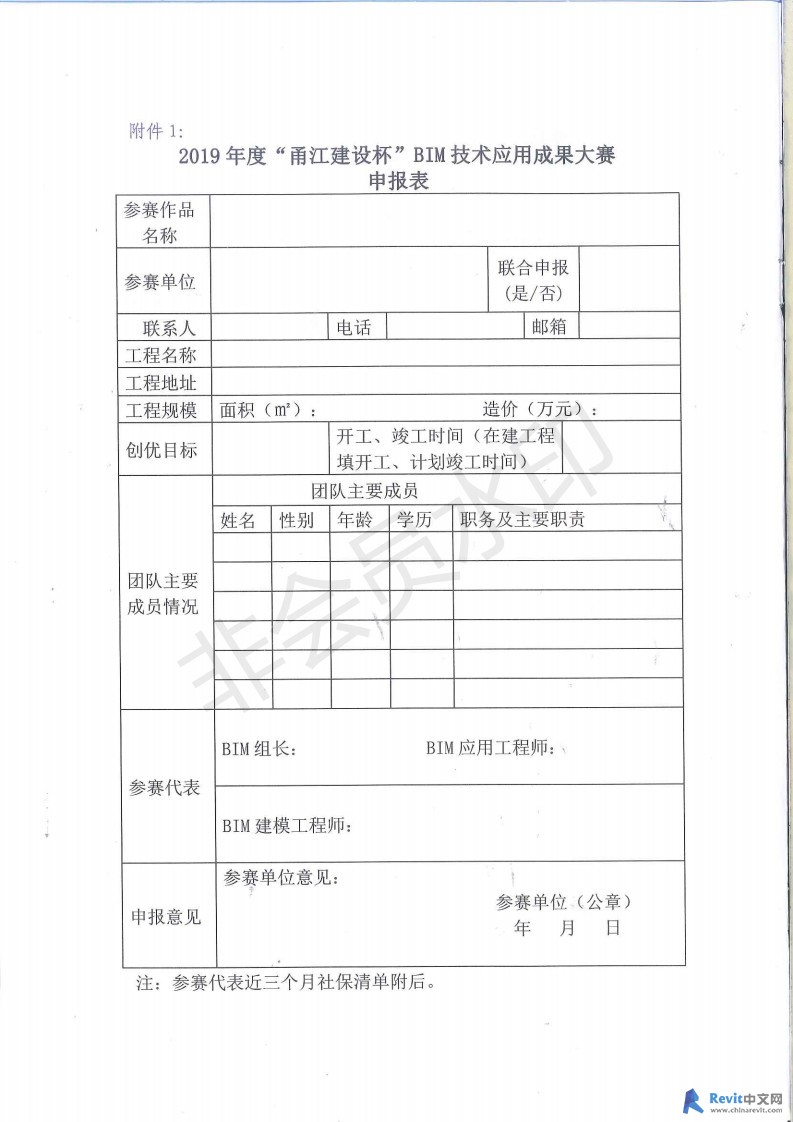 附件1:
2019年度“甬江建设杯”BIM技术应用成果大赛
申报表
参赛作品
名称
参赛单位
联合申报
(是/否)
联系人
电话
邮箱
工程名称
工程地址
工程规模
面积（㎡）:
造价（万元）:
创优目标
开工、竣工时间（在建工程
填开工、计划竣工时间）
团队主要
成员情况
团队主要成员
姓名
性别
年龄
学历
职务及主要职责
参赛代表
BIM组长:
BIM应用工程师:
BIM建模工程师:
申报意见
参赛单位意见:
参赛单位（公章）
年 月 日
注: 参赛代表近三个月社保清单附后。
非会员水印
Revit中文网
www.chinarevit.com